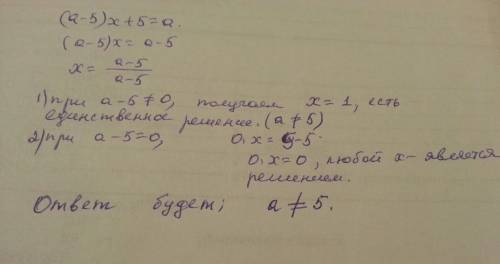 (a-5)x+5=a.
(a-5)x= a-5
x= a-5/a-5
1) при a-5≠0, получаем x=1, есть
единственное решение. (a≠5)
2) при a-5=0, 0·x= 5-5
0·x=0, любой x- является
решением.
Ответ будет; a≠5.